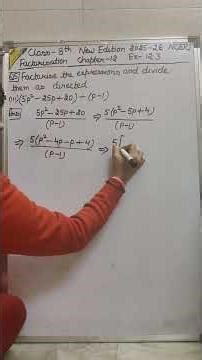 Class-8th New Edition 2025-26 NCERT
Factorisation Chapter-12 Ex-12.3
Q5) Factorise the expressions and divide
them as directed
(iii) (5p²-25p+20) ÷ (p-1)
5p²-25p+20 / (p-1) ⇒ 5(p²-5p+4) / (p-1)
⇒ 5(p²-4p-p+4) / (p-1) ⇒ 5[